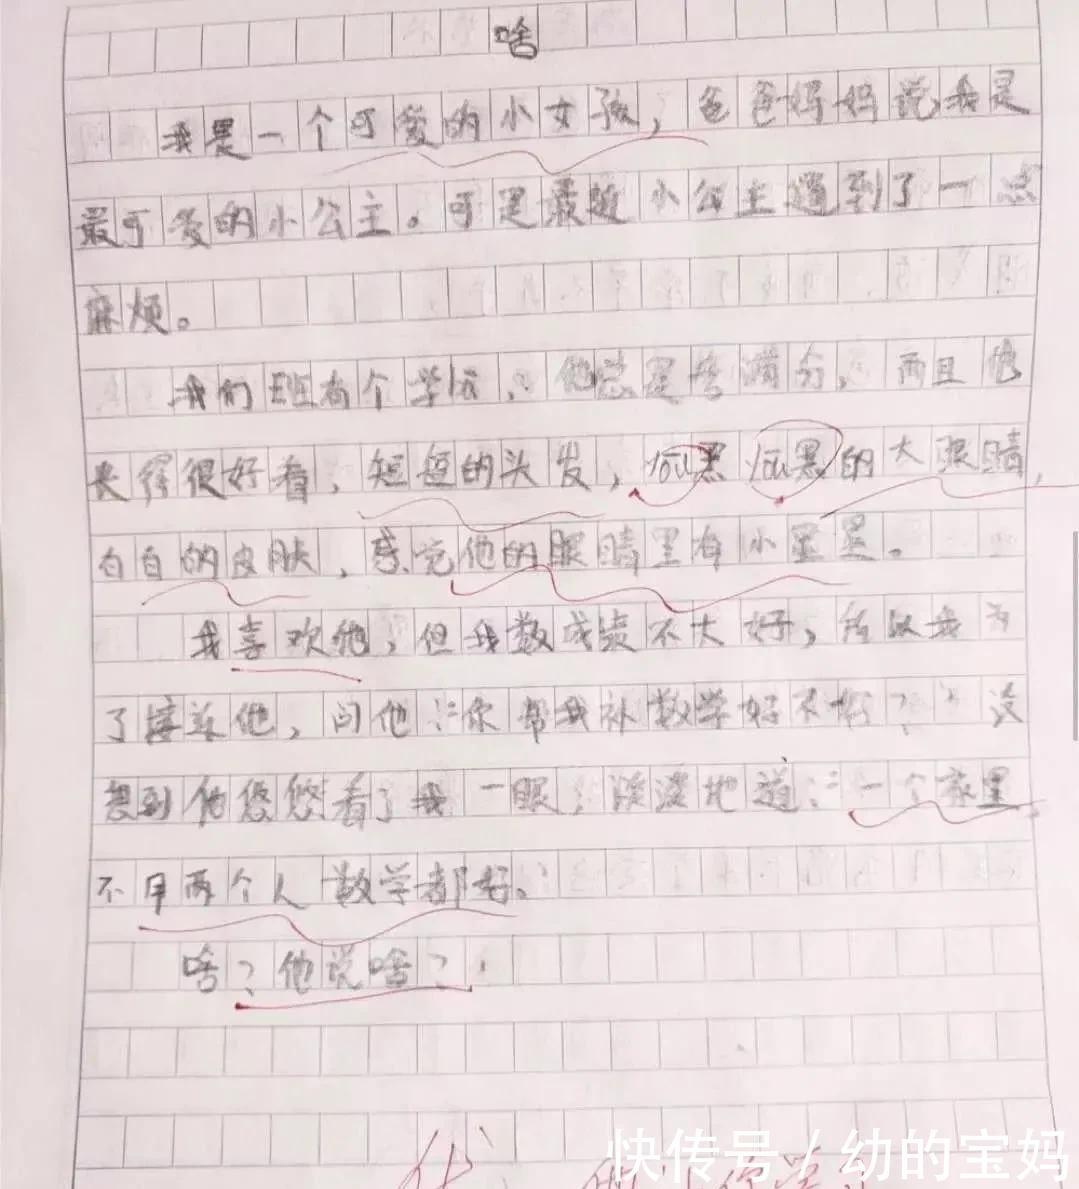 啥
我是一个可爱的小女孩，爸爸妈妈说我是
最可爱的小公主。可是最近小公主遇到了一点
麻烦。
我们班有个学伝，他总是考满分，而且他
长得很好看，短短的头发，you黑you黑的大眼睛，
白白的皮肤，感觉他的眼睛里有小星星。
我喜欢他，但我数成绩不大好，所以我为
了接近他，问他：“你帮我补数学好不好？”没
想到他悠悠看了我一眼，淡淡地道：“一个家里
不用两个人数学都好。
啥？他说啥？
优
快传号/幼的宝妈